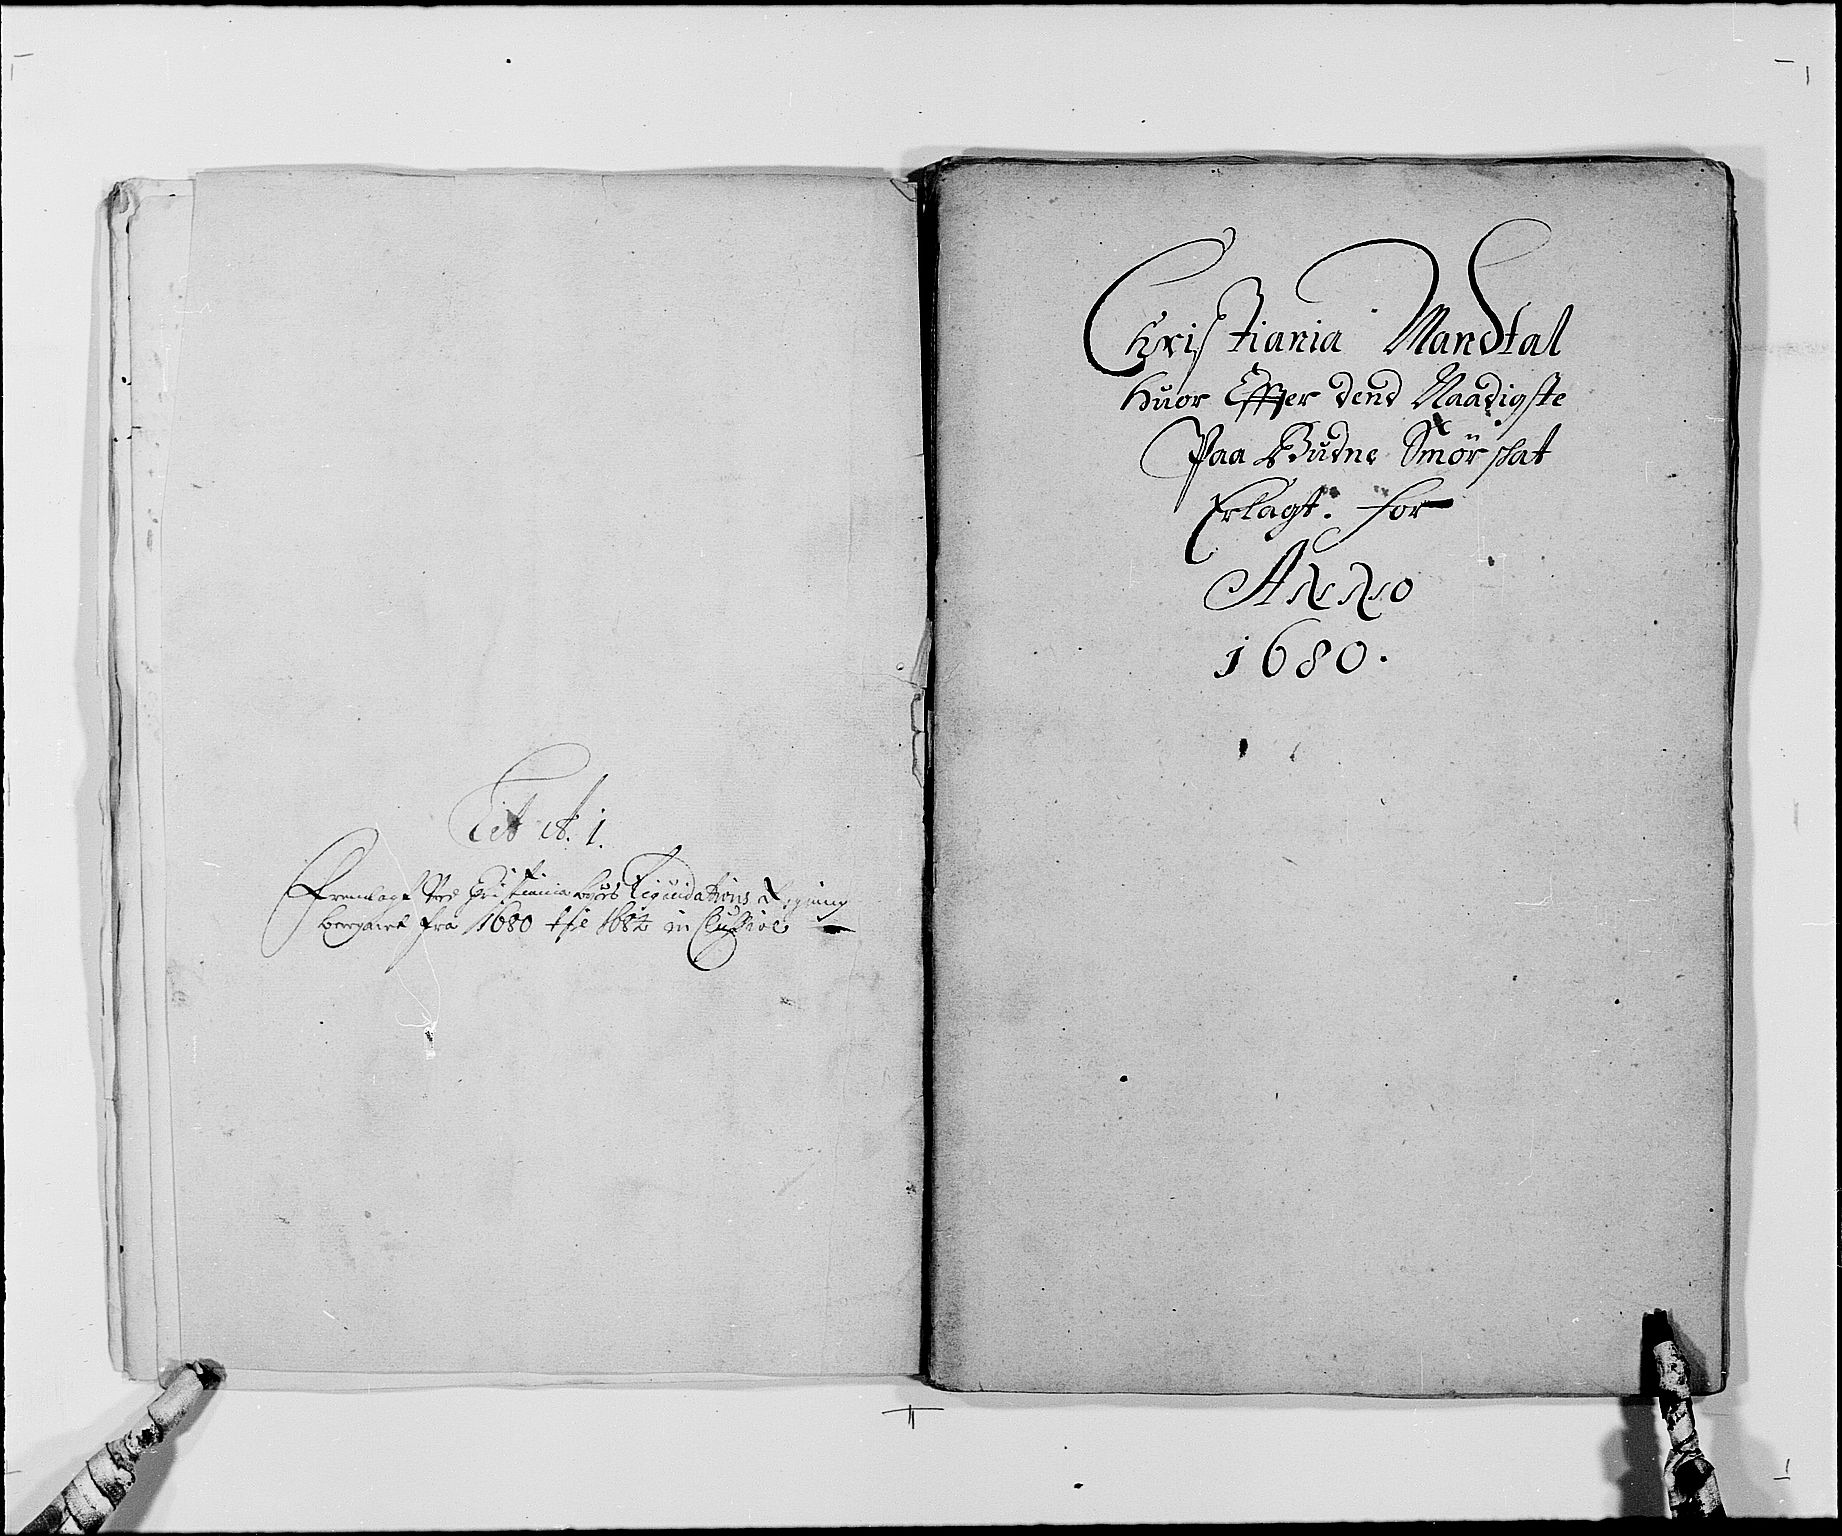 Lit: A. 1.
Fremlagt Ved Christiania byes Liquidations
beregnet fra 1680 til 1682 inclussive
Christiania Mandtal
huor Effter dend Naadigste
Paa Budne Smör skat
Erlagt. for
Anno
1680.